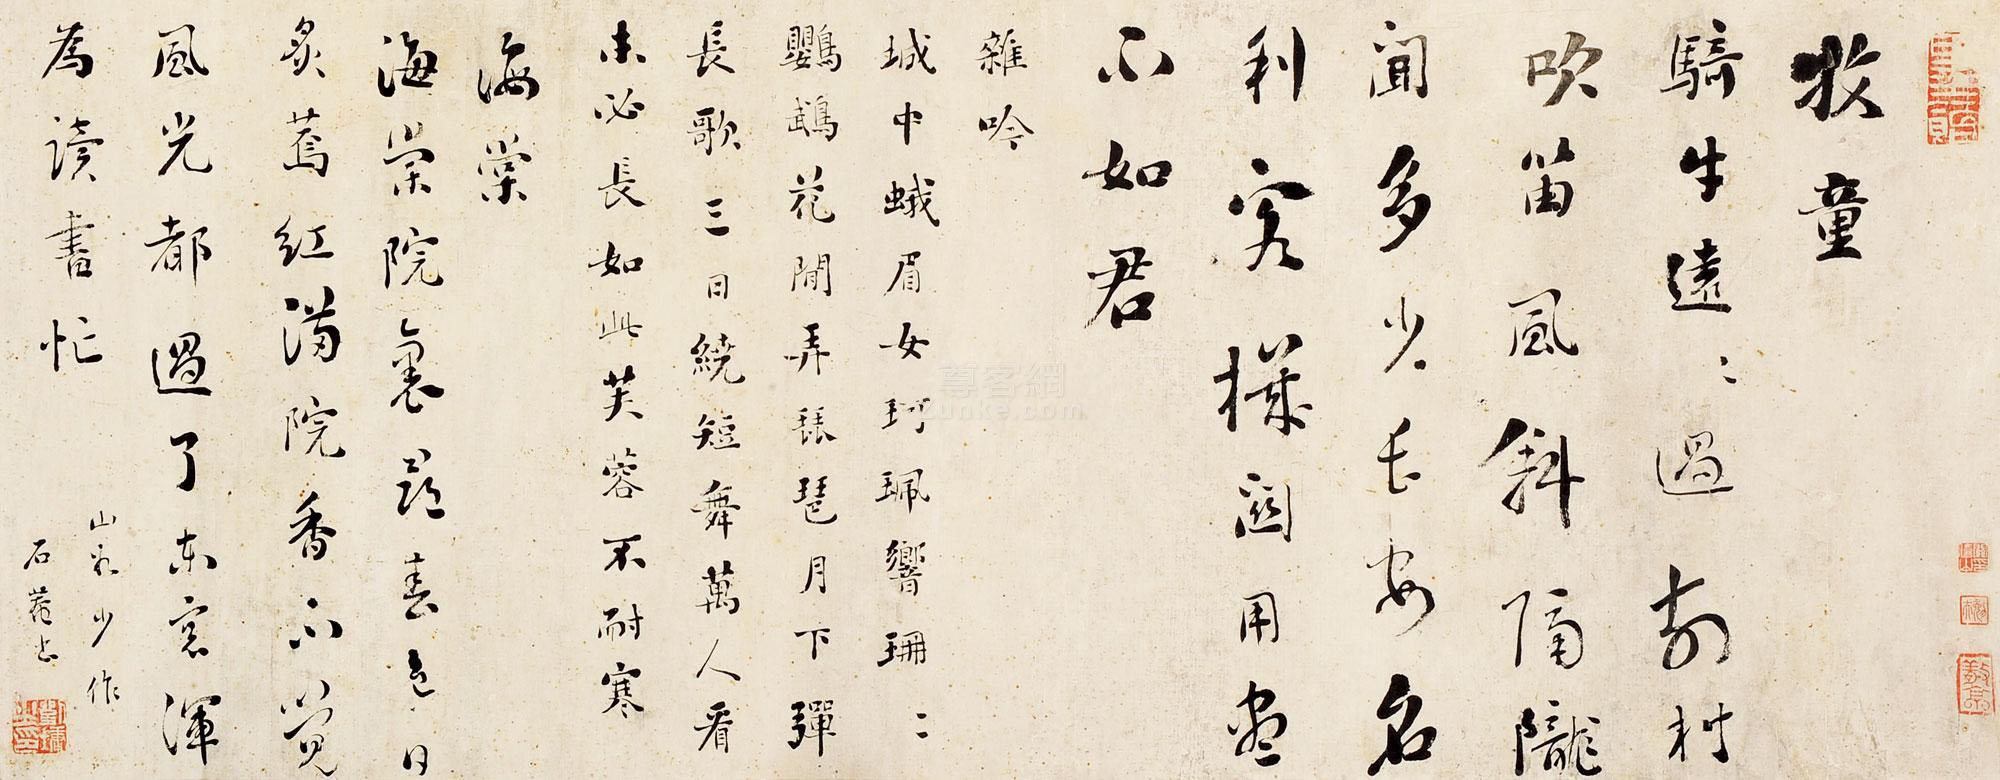 牧童
騎牛遠〻過前村
吹笛風斜隔隴
聞多少長安名
利客機關用盡
不如君
雜吟
城中蛾眉女珂珮響珊〻
鸚鵡花間弄琵琶月下彈
長歌三日繞短舞萬人看
未必長如此芙蓉不耐寒
海棠
海棠院裏尋春色日
炙蔫紅滿院香不覺
風光都過了東窓渾
為讀書忙
山谷少作
石菴書
尊客網
zunke.com